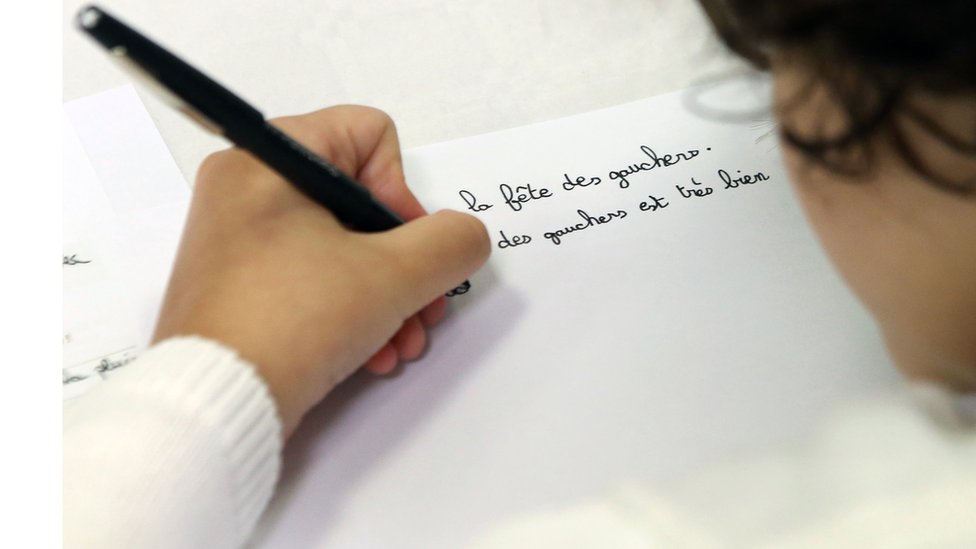 la fête des gauchers.
des gauchers est très bien
la